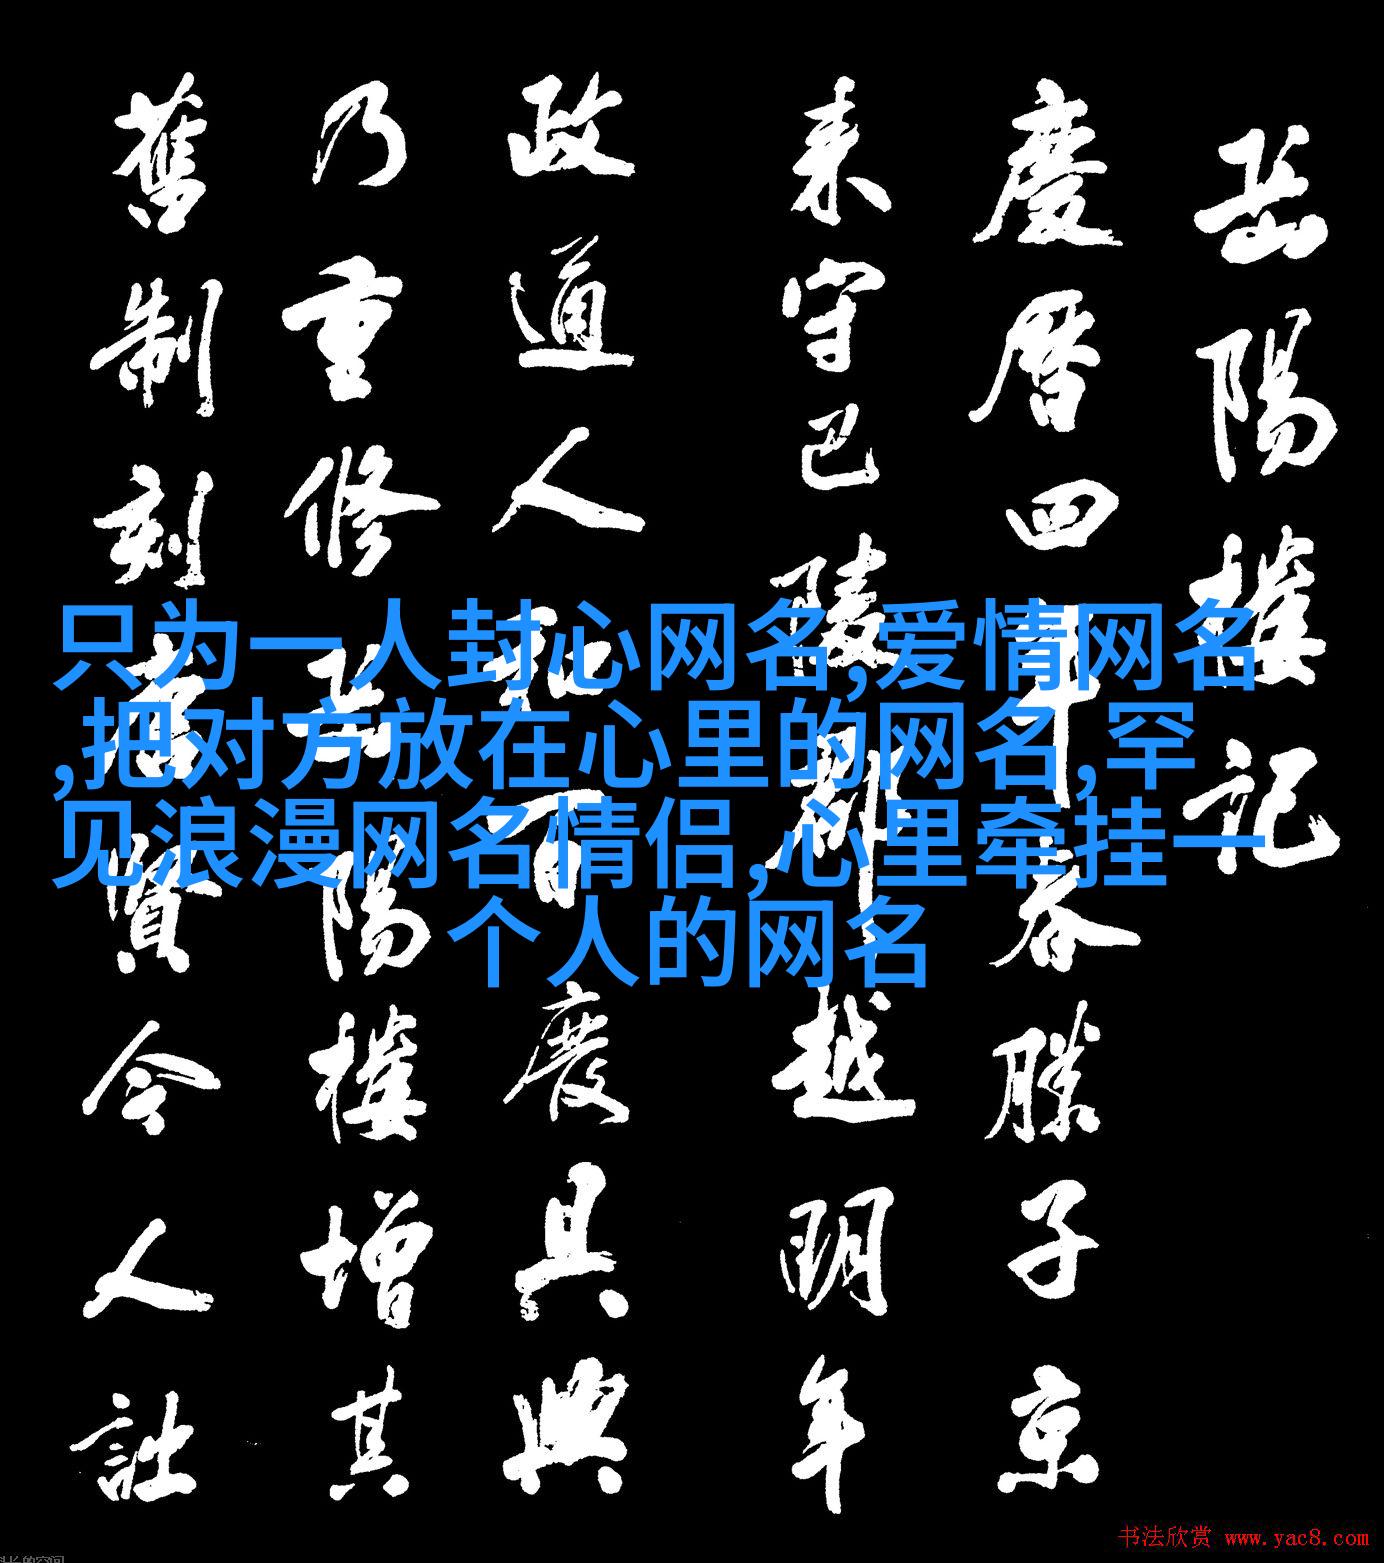 岳陽樓記
慶曆四年春滕子京
来守巴陵郡越明年
政通人和百廢具興
乃重修岳陽樓增其
舊制刻唐賢今人詩
只为一人封心网名,爱情网名
,把对方放在心里的网名,罕
见浪漫网名情侣,心里牵挂一
个人的网名
书法欣赏 www.yac8.com